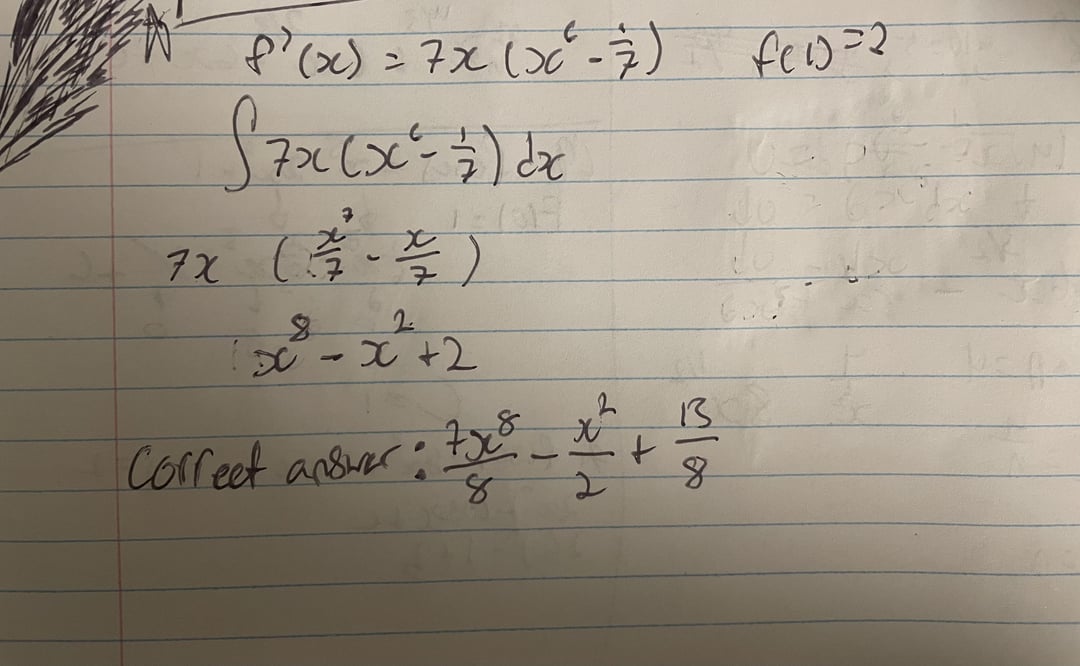 f'(x) = 7x (x⁶ - 1/7)   f(1) = 2
∫ 7x (x⁶ - 1/7) dx
7x ( x⁷/7 - x/7 )
x⁸ - x² + 2
Correct answer : 7x⁸/8 - x²/2 + 13/8